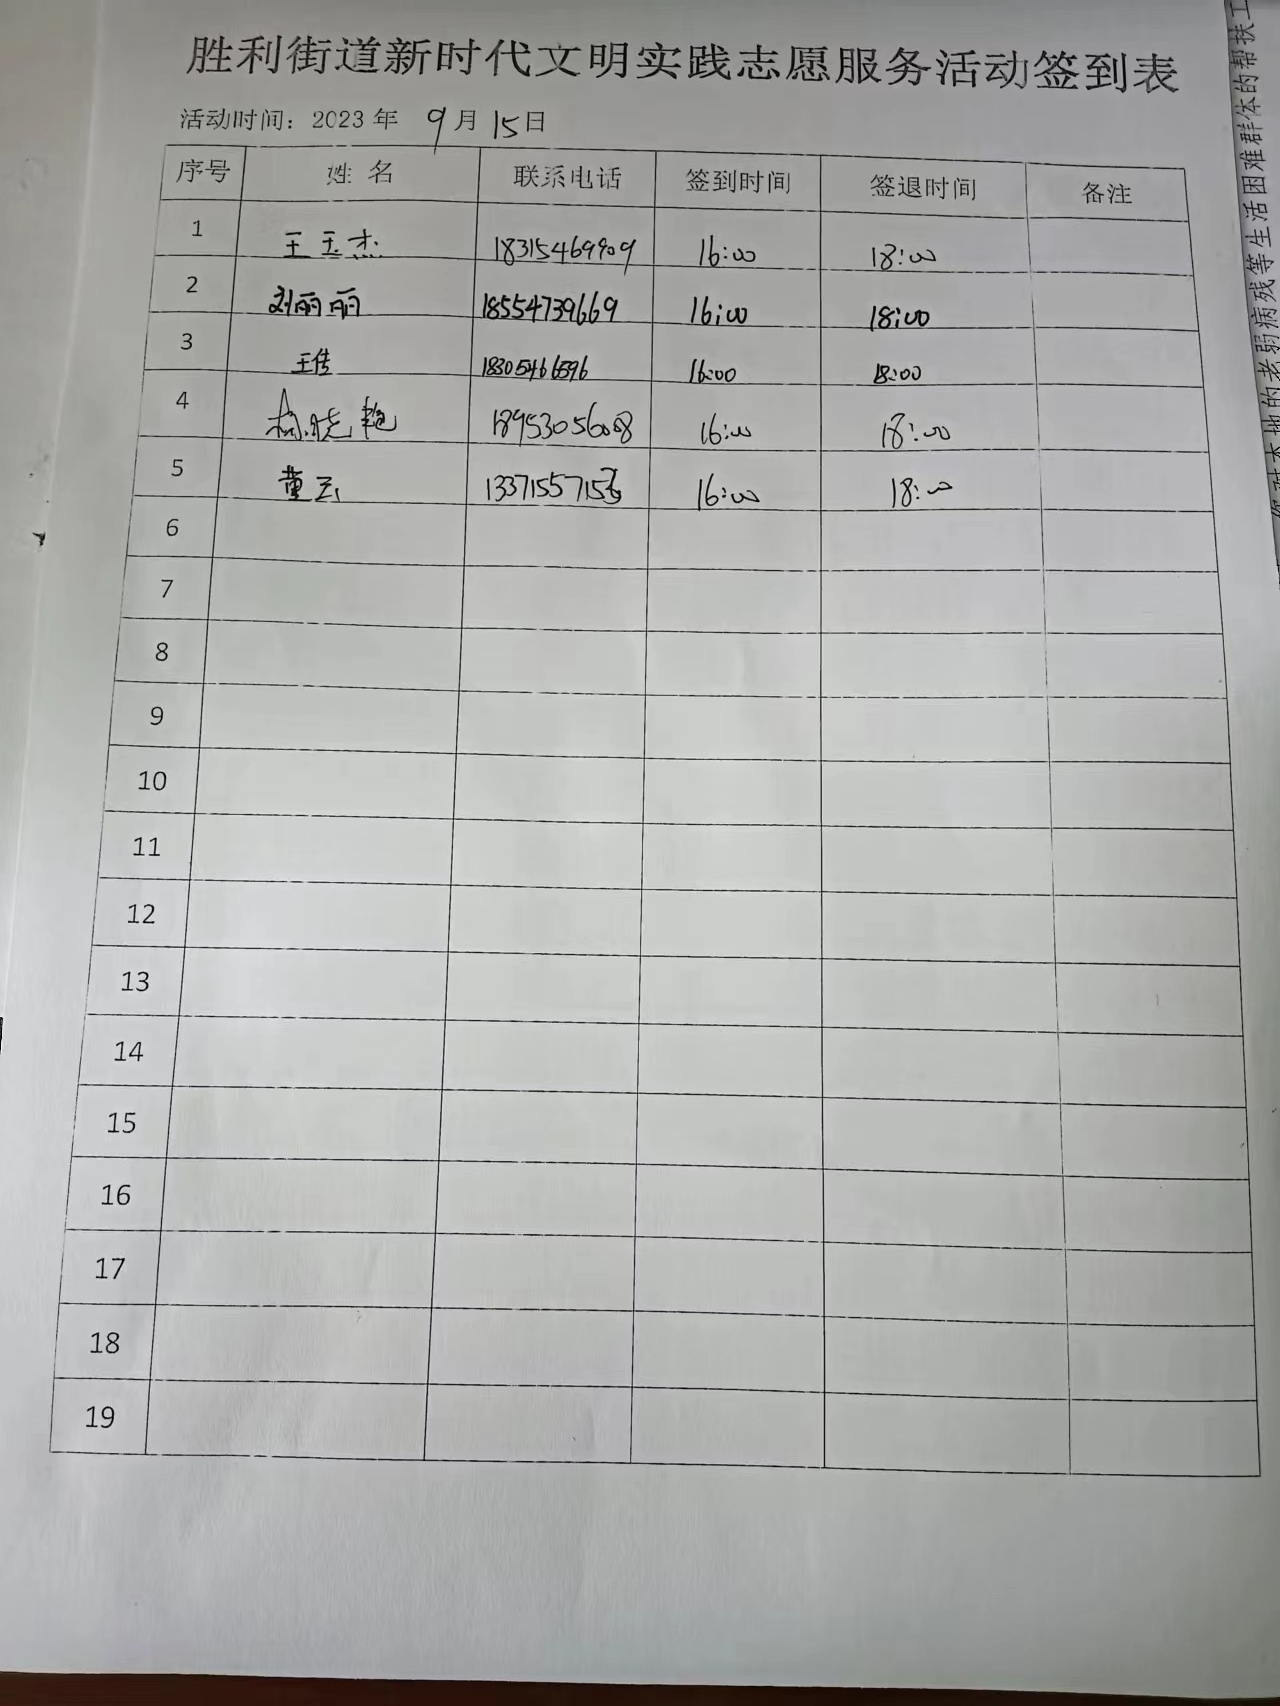 胜利街道新时代文明实践志愿服务活动签到表
活动时间：2023年 9月 15日
序号 姓名 联系电话 签到时间 签退时间 备注
1 王玉杰 18315469909 16:00 18:00
2 刘丽丽 18554739669 16:00 18:00
3 王佳 18305466596 16:00 18:00
4 晓艳 18953056008 16:00 18:00
5 董云 16:00 18:00
6
7
8
9
10
11
12
13
14
15
16
17
18
19
老弱病残等生活困难群体的帮扶工